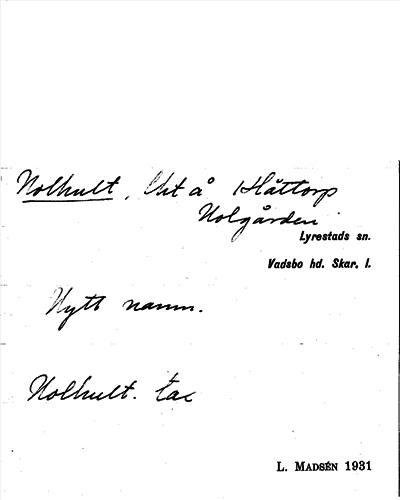 Nolhult, Lht å Slättorp
Nolgården
Lyrestads sn.
Vadsbo hd. Skar. l.
Nytt namn.
Nolhult.
L. MADSÉN 1931